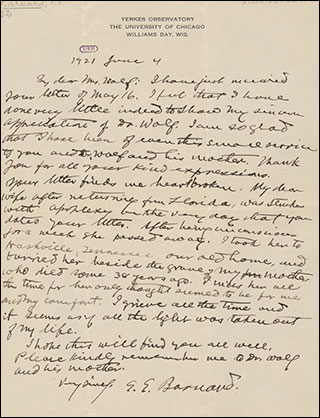 YERKES OBSERVATORY
THE UNIVERSITY OF CHICAGO
WILLIAMS BAY, WIS.
1921 June 4
My dear Mrs. Wolf: I have just received
your letter of May 16. I feel that I have
done very little indeed to show my sincere
appreciation of Dr. Wolf. I am so glad
that I have been of even this small service
to you and Dr Wolf and his mother. Thank
you for all your kind expressions.
Your letter finds me heartbroken. My dear
wife after returning from Florida, was stricken
with apoplexy on the very day that you
dated your letter. After being unconscious
for a week she passed away. I took her to
Nashville Tennessee our old home, and
burried her beside the grave of my poor mother
who died some 36 years ago. I miss her all
the time for her only thought seemed to be for me
and my comfort. I grieve all the time and
it seems as if all the light was taken out
of my life.
I hope this will find you all well,
Please kindly remember me to Dr Wolf
and his mother.
E. E. Barnard.